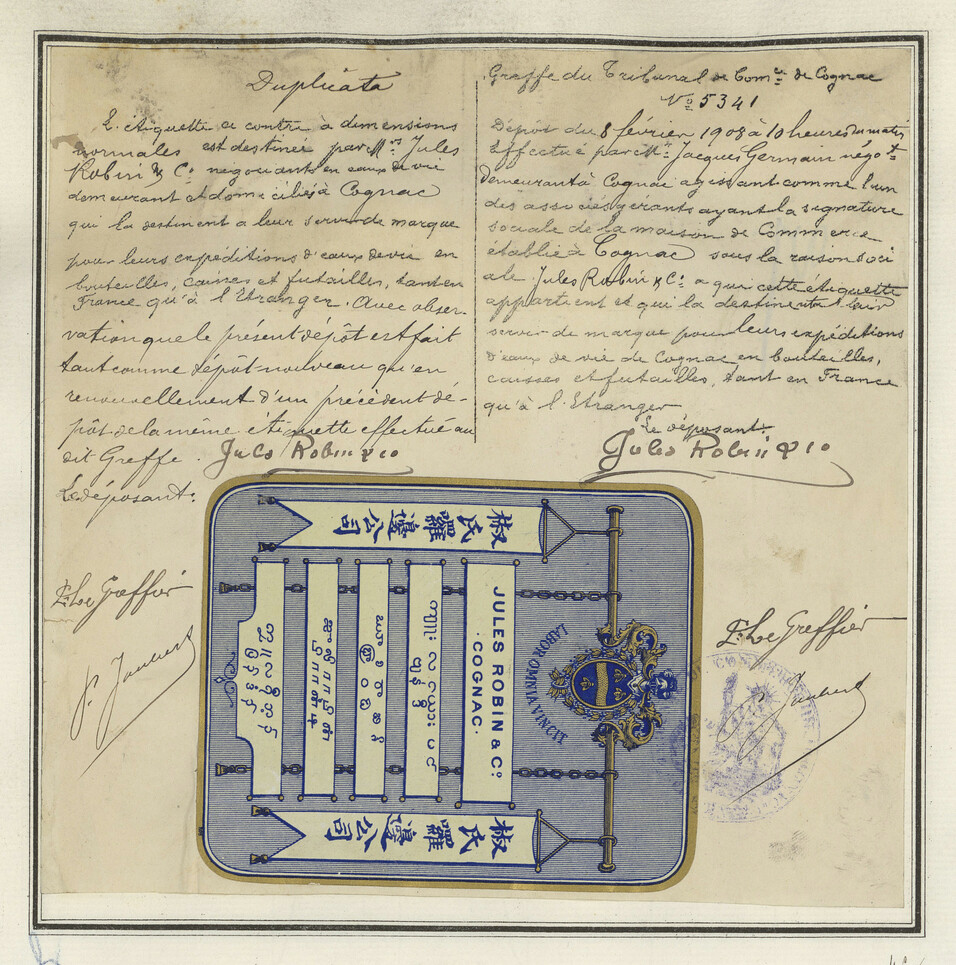 Duplicata
L'étiquette ci contre à dimensions
normales est destinée par MM. rs Jules
Robin & Co négociants en eaux de vie
demeurant et domiciliés à Cognac
qui la destinent a leur servir de marque
pour leurs expéditions d'eaux de vie en
bouteilles, caisses et futailles, tant en
France qu'à l'Etranger. Avec obser-
vation que le présent dépôt est fait
tant comme dépôt nouveau qu'en
renouvellement d'un précédent dé-
pôt de la même étiquette effectué au
dit Greffe.
Jules Robin & Co
Le déposant:
P. Le Greffier
P. Jaubert
Greffe du Tribunal de Com.ce de Cognac
No 5341
Dépôt du 8 février 1908 à 10 heures du matin
Effectué par Mr. Jacques Germain négo.t
demeurant à Cognac agissant comme l'un
des associés gérants ayant la signature
sociale de la maison de Commerce
établie à Cognac sous la raison soci
ale Jules Robin & Co a que cette étiquette
appartient et qui la destinent à leur
servir de marque pour leurs expéditions
d'eaux de vie de Cognac en bouteilles,
caisses et futailles, tant en France
qu'à l'Etranger
Le déposant:
Jules Robin & Co
P. Le Greffier
Jaubert
LABOR OMNIA VINCIT
椒氏羅邊公司
JULES ROBIN & Co.
COGNAC.
椒氏羅邊公司